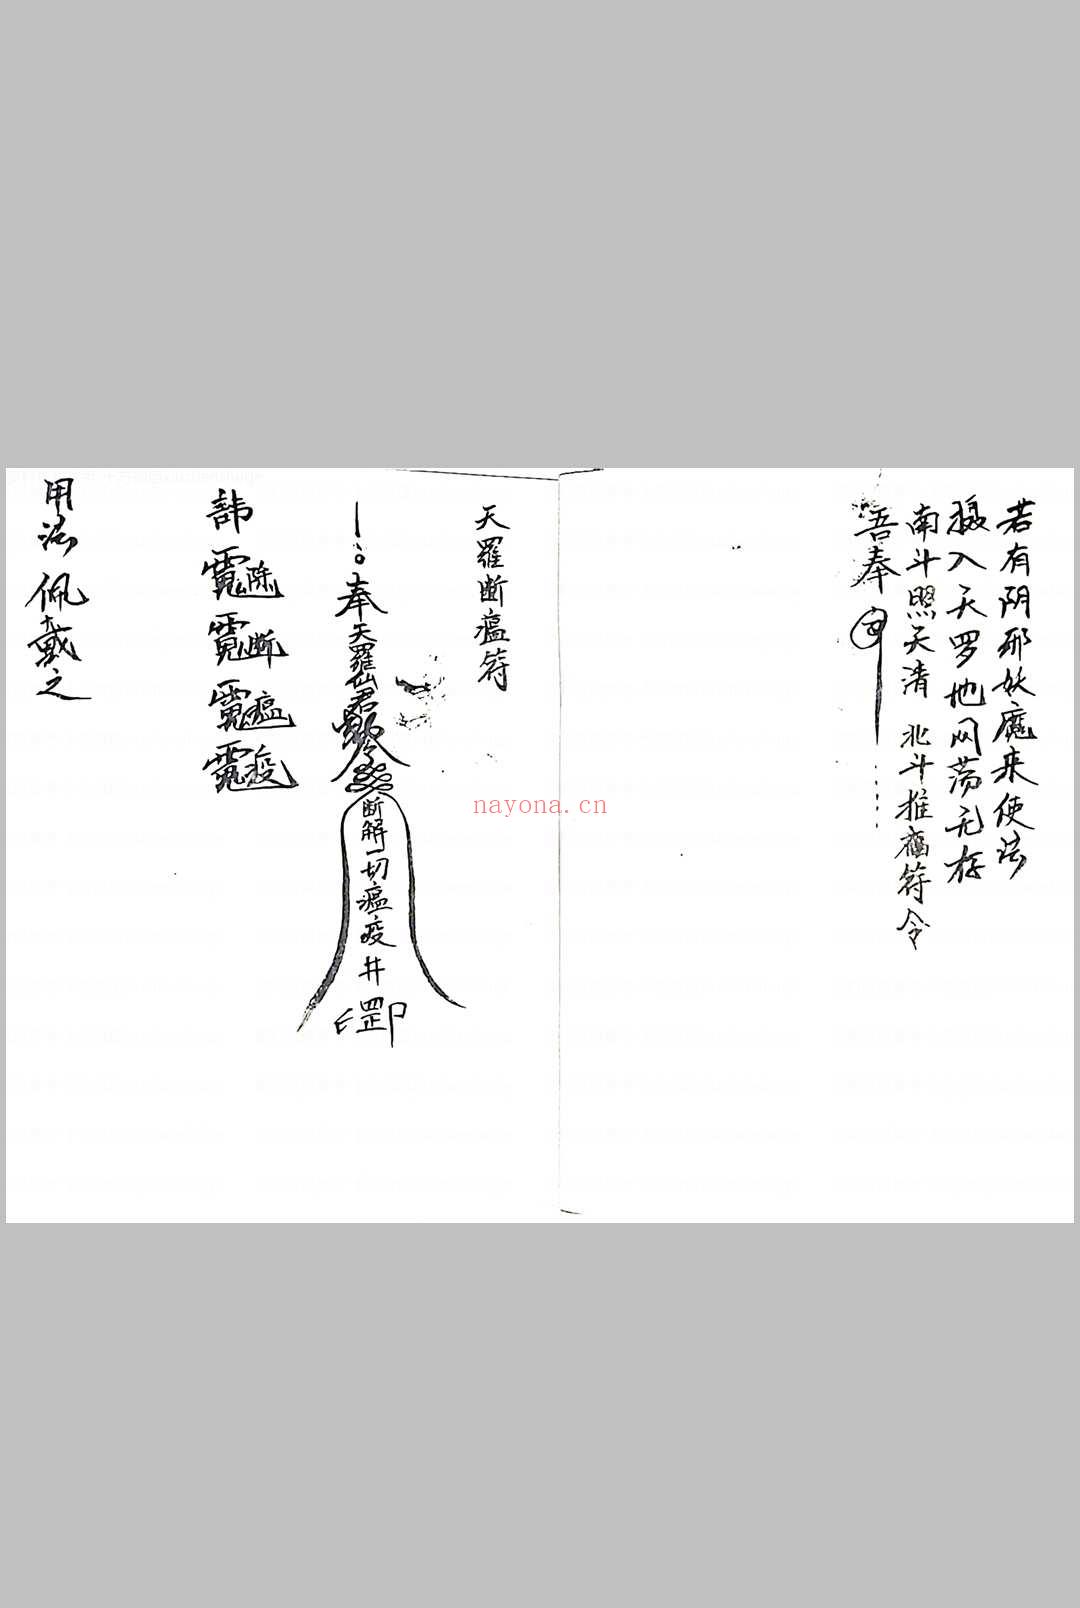 若有阴邪妖魔来使法
摄入天罗地网荡无存
南斗照天清 北斗推 符令
吾奉
天羅断瘟符
奉天羅仙君
断解一切瘟疫井
罡印
諱
除
断
瘟
疫
用法 佩戴之
nayona.cn